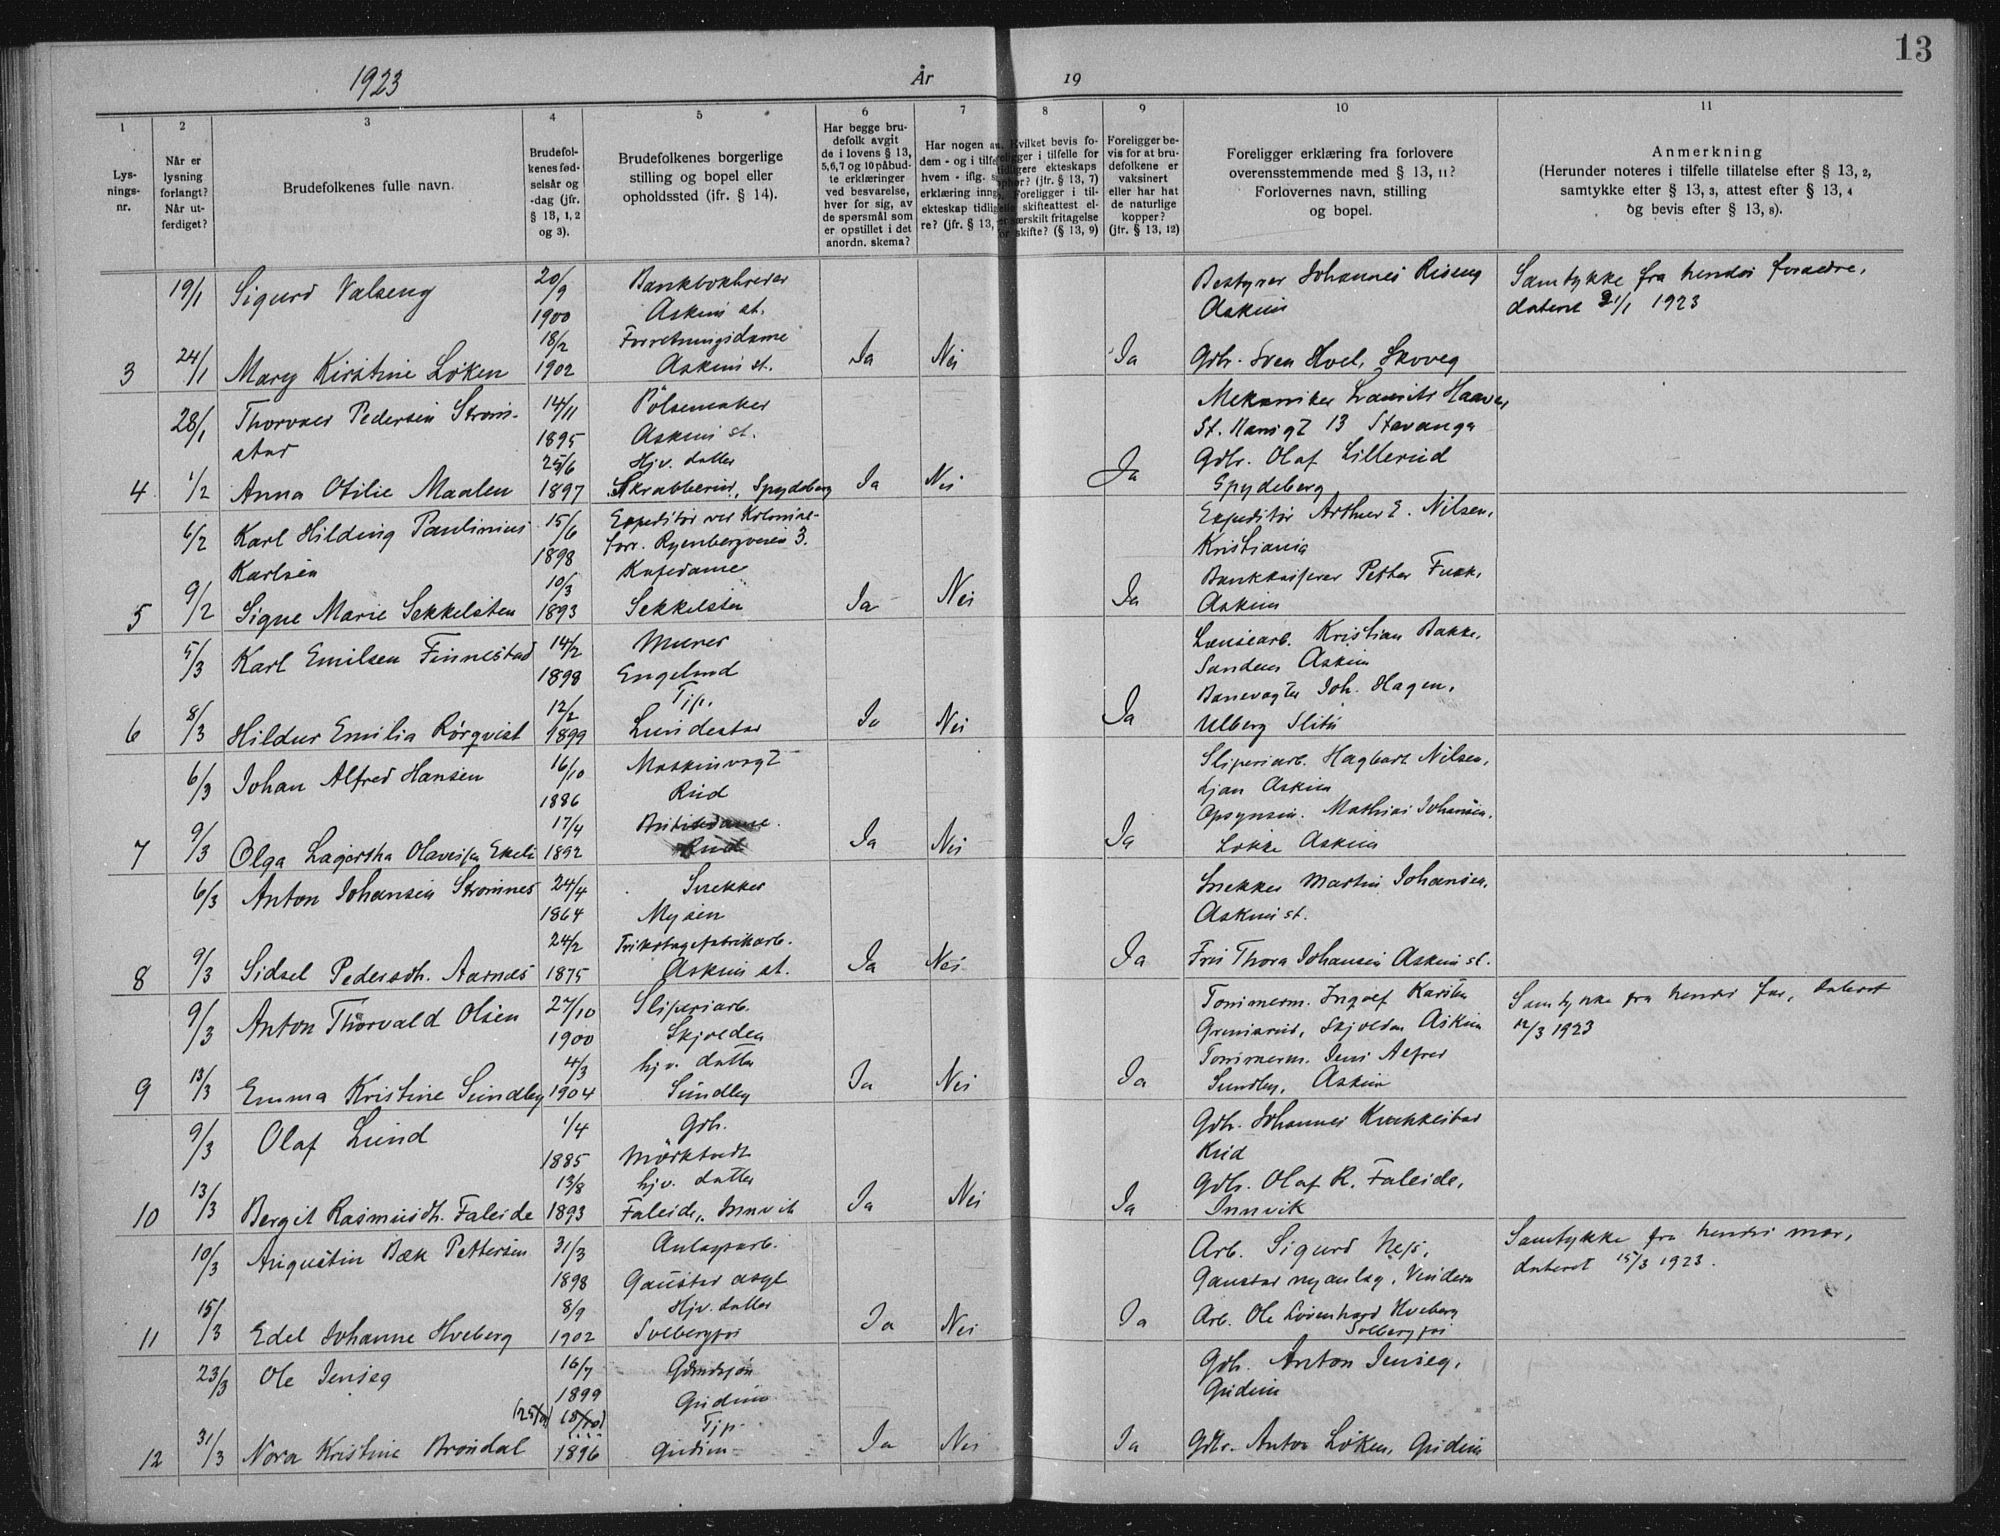 13
1923 År 19
1 2 3 4 5 6 7 8 9 10 11
Lys-
nings-
nr.
Når er
lysning
forlangt?
Når ut-
ferdiget?
Brudefolkenes fulle navn.
Brudefol-
kenes fød-
selsår og
-dag (jfr.
§ 13, 1, 2
og 3).
Brudefolkenes borgerlige
stilling og bopel eller
opholdssted (jfr. § 14).
Har begge bru-
defolk avgit
de i lovens § 13,
5,6,7 og 10 påbud-
te erklæringer
ved besvarelse,
hver for sig, av
de spørsmål som
er opstillet i det
anordn. skema?
Har nogen
dem - og i tilfe
hvem - iflg.
erklæring inng
ekteskap tidlig
re? (jfr. § 13,
Hvilket bevis fo-
religger i tilfelle for
tidligere ekteskaps
ophør? (jfr. § 13, 7)
Foreligger i til-
felle skifteattest el-
ler særskilt fritagelse
for skifte? (§ 13, 9)
Foreligger be-
vis for at bru-
defolkene er
vaksinert
eller har hat
de naturlige
kopper?
(jfr. § 13, 12)
Foreligger erklæring fra forlovere
overensstemmende med § 13, 11?
Forlovernes navn, stilling
og bopel.
Anmerkning
(Herunder noteres i tilfelle tillatelse efter § 13, 2,
samtykke efter § 13, 3, attest efter § 13, 4
og bevis efter § 13, 8).
19/1 Sigurd Valseng 20/9 1900 Bankbokholder
Askim st.
Bestyrer Johannes Riseng
Askim
Samtykke fra hendes foreldre,
dateret 21/1 1923
3 24/1 Mary Kirstine Løken 18/2 1902 Forretningsdame
Askim st. Ja Nei Ja Gdbr. Sven Hoel, Skoveg
28/1 Thorvald Pedersen Strøm-
stad 14/11 1895 Pølsemaker
Askim st.
Mekaniker Haaver
St. Hansgt 13 Stavanger
4 1/2 Anna Otilie Maalen 25/6 1897 Hjv. datter
Skrabberud, Spydeberg Ja Nei Ja Gdbr. Olaf Lillerud
Spydeberg
6/2 Karl Hilding Paulinius
Karlsen 15/6 1898 Expeditør ved Kolonial-
forr. Ryenbergveien 3.
Expeditør Arthur E. Nilsen,
Kristiania
5 9/2 Signe Marie Sekkelsten 10/3 1893 Kafedame
Sekkelsten Ja Nei Ja Bankkasserer Petter Fusk,
Askim
5/3 Karl Emilsen Finnestad 14/2 1898 Murer
Engelund
Lensearb. Kristian Bakke,
Sanden Askim
6 8/3 Hildur Emilia Rørqvist 12/2 1899 Tjp.
Lundestad Ja Nei Ja Banevogter Joh. Hagen,
Ulberg Slitu
6/3 Johan Alfred Hansen 16/10 1886 Maskinvogt
Rud
Sliperiarb. Hagbart Nilsen,
Ljan Askim
7 9/3 Olga Lagertha Olavesen Ekeli 17/4 1892 Butikdame.
Rud Ja Nei Ja Opsynsm. Mathias Johansen,
Løkke Askim
6/3 Anton Johansen Strømnes 24/4 1864 Snekker
Mysen
Snekker Martin Johansen,
Askim st.
8 9/3 Sidsel Pedersdh. Aarnes 24/2 1875 Trikotagefabrikarb.
Askim st. Ja Nei Ja Fru Thora Johansen Askim st.
9/3 Anton Thorvald Olsen 27/10 1900 Sliperiarb.
Skjolden
Tømmerm. Ingolf Karsten
Grimsrud, Skjolden Askim
Samtykke fra hendes far, dateret
12/3 1923
9 13/3 Emma Kristine Sundby 4/3 1904 hjv. datter
Sundby Ja Nei Ja Tømmerm. Jens Alfred
Sundby, Askim
9/3 Olaf Lund 1/4 1885 Gdb.
Mörktvedt
Gdbr. Johannes Krukkestad
Rud
10 13/3 Bergit Rasmusdh. Faleide 13/8 1893 hjv. datter
Faleide, Innvik Ja Nei Ja Gdbr. Olaf R. Faleide,
Innvik
10/3 Augustin Bæk Pettersen 31/3 1898 Anlægsarb.
Gaustad asyl
Arb. Sigurd Ness,
Gaustad nyanlæg, Vinderen
Samtykke fra hendes mor,
dateret 15/3 1923.
11 15/3 Edel Johanne Hveberg 8/9 1902 Hjv. datter
Solbergfos Ja Nei Ja Arb. Ole Lorenhard Hveberg
Solbergfos
23/3 Ole Jenseg 16/7 1899 Gårdssøn
Gudim
Gdb. Anton Jenseg,
Gudim
12 31/3 Nora Kristine Brøndal 1896 Tjp.
Gudim Ja Nei Ja Gdbr. Anton Løken, Gudim